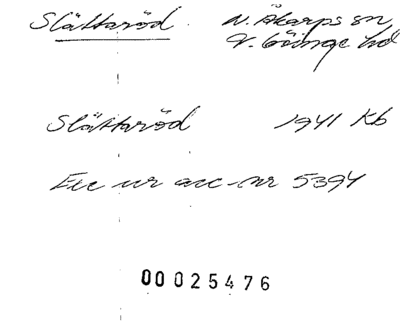 Slättaröd N. Åkarps sn
V. Göinge hd
Slättaröd 1941 Kb
Exc ur acc-nr 5394
00025476